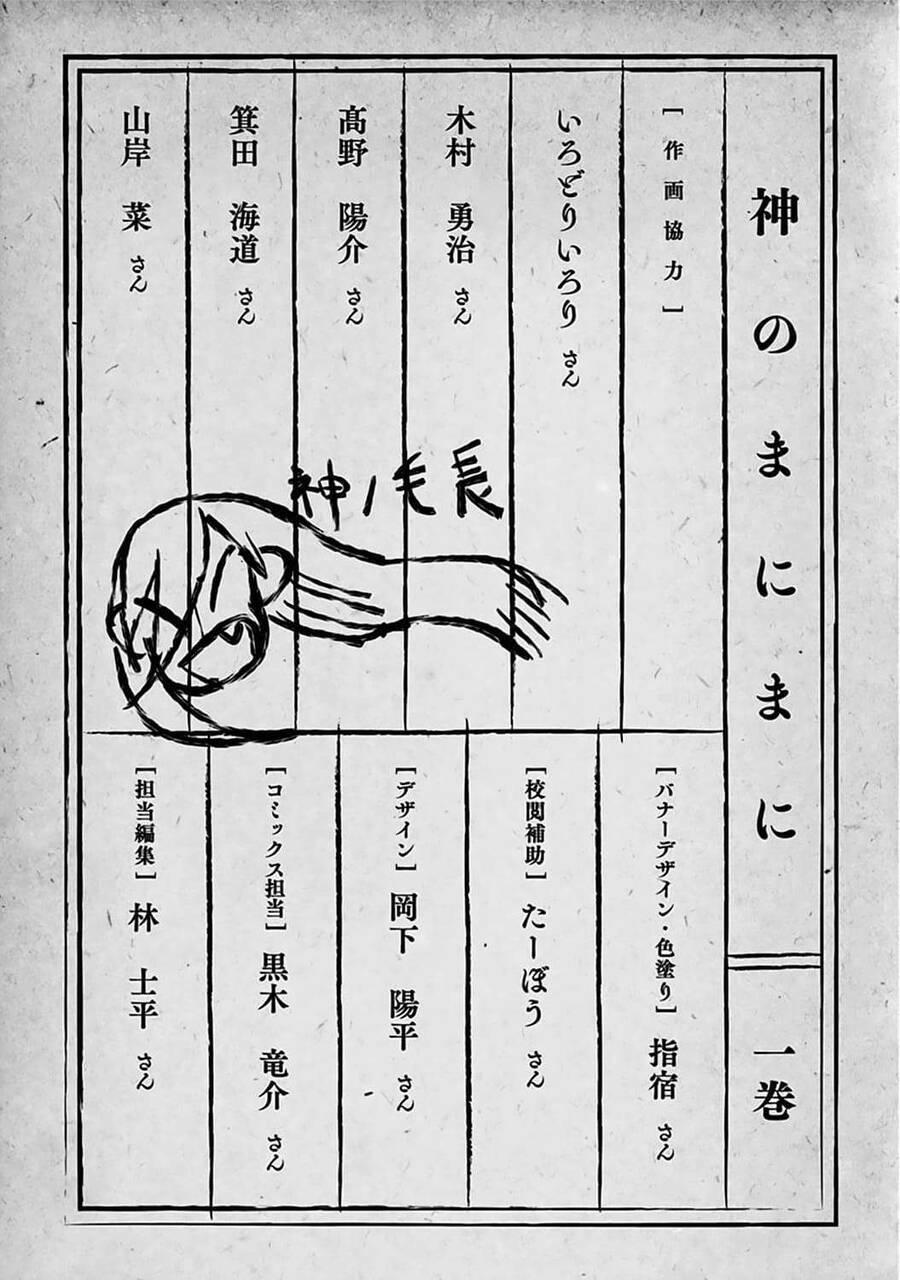 神のまにまに 一巻
[作画協力]
いろどりいろり さん
木村 勇治 さん
髙野 陽介 さん
箕田 海道 さん
山岸 菜 さん
神ノ毛長
[バナーデザイン・色塗り] 指宿 さん
[校閲補助] たーぼう さん
[デザイン] 岡下 陽平 さん
[コミックス担当] 黒木 竜介 さん
[担当編集] 林 士平 さん